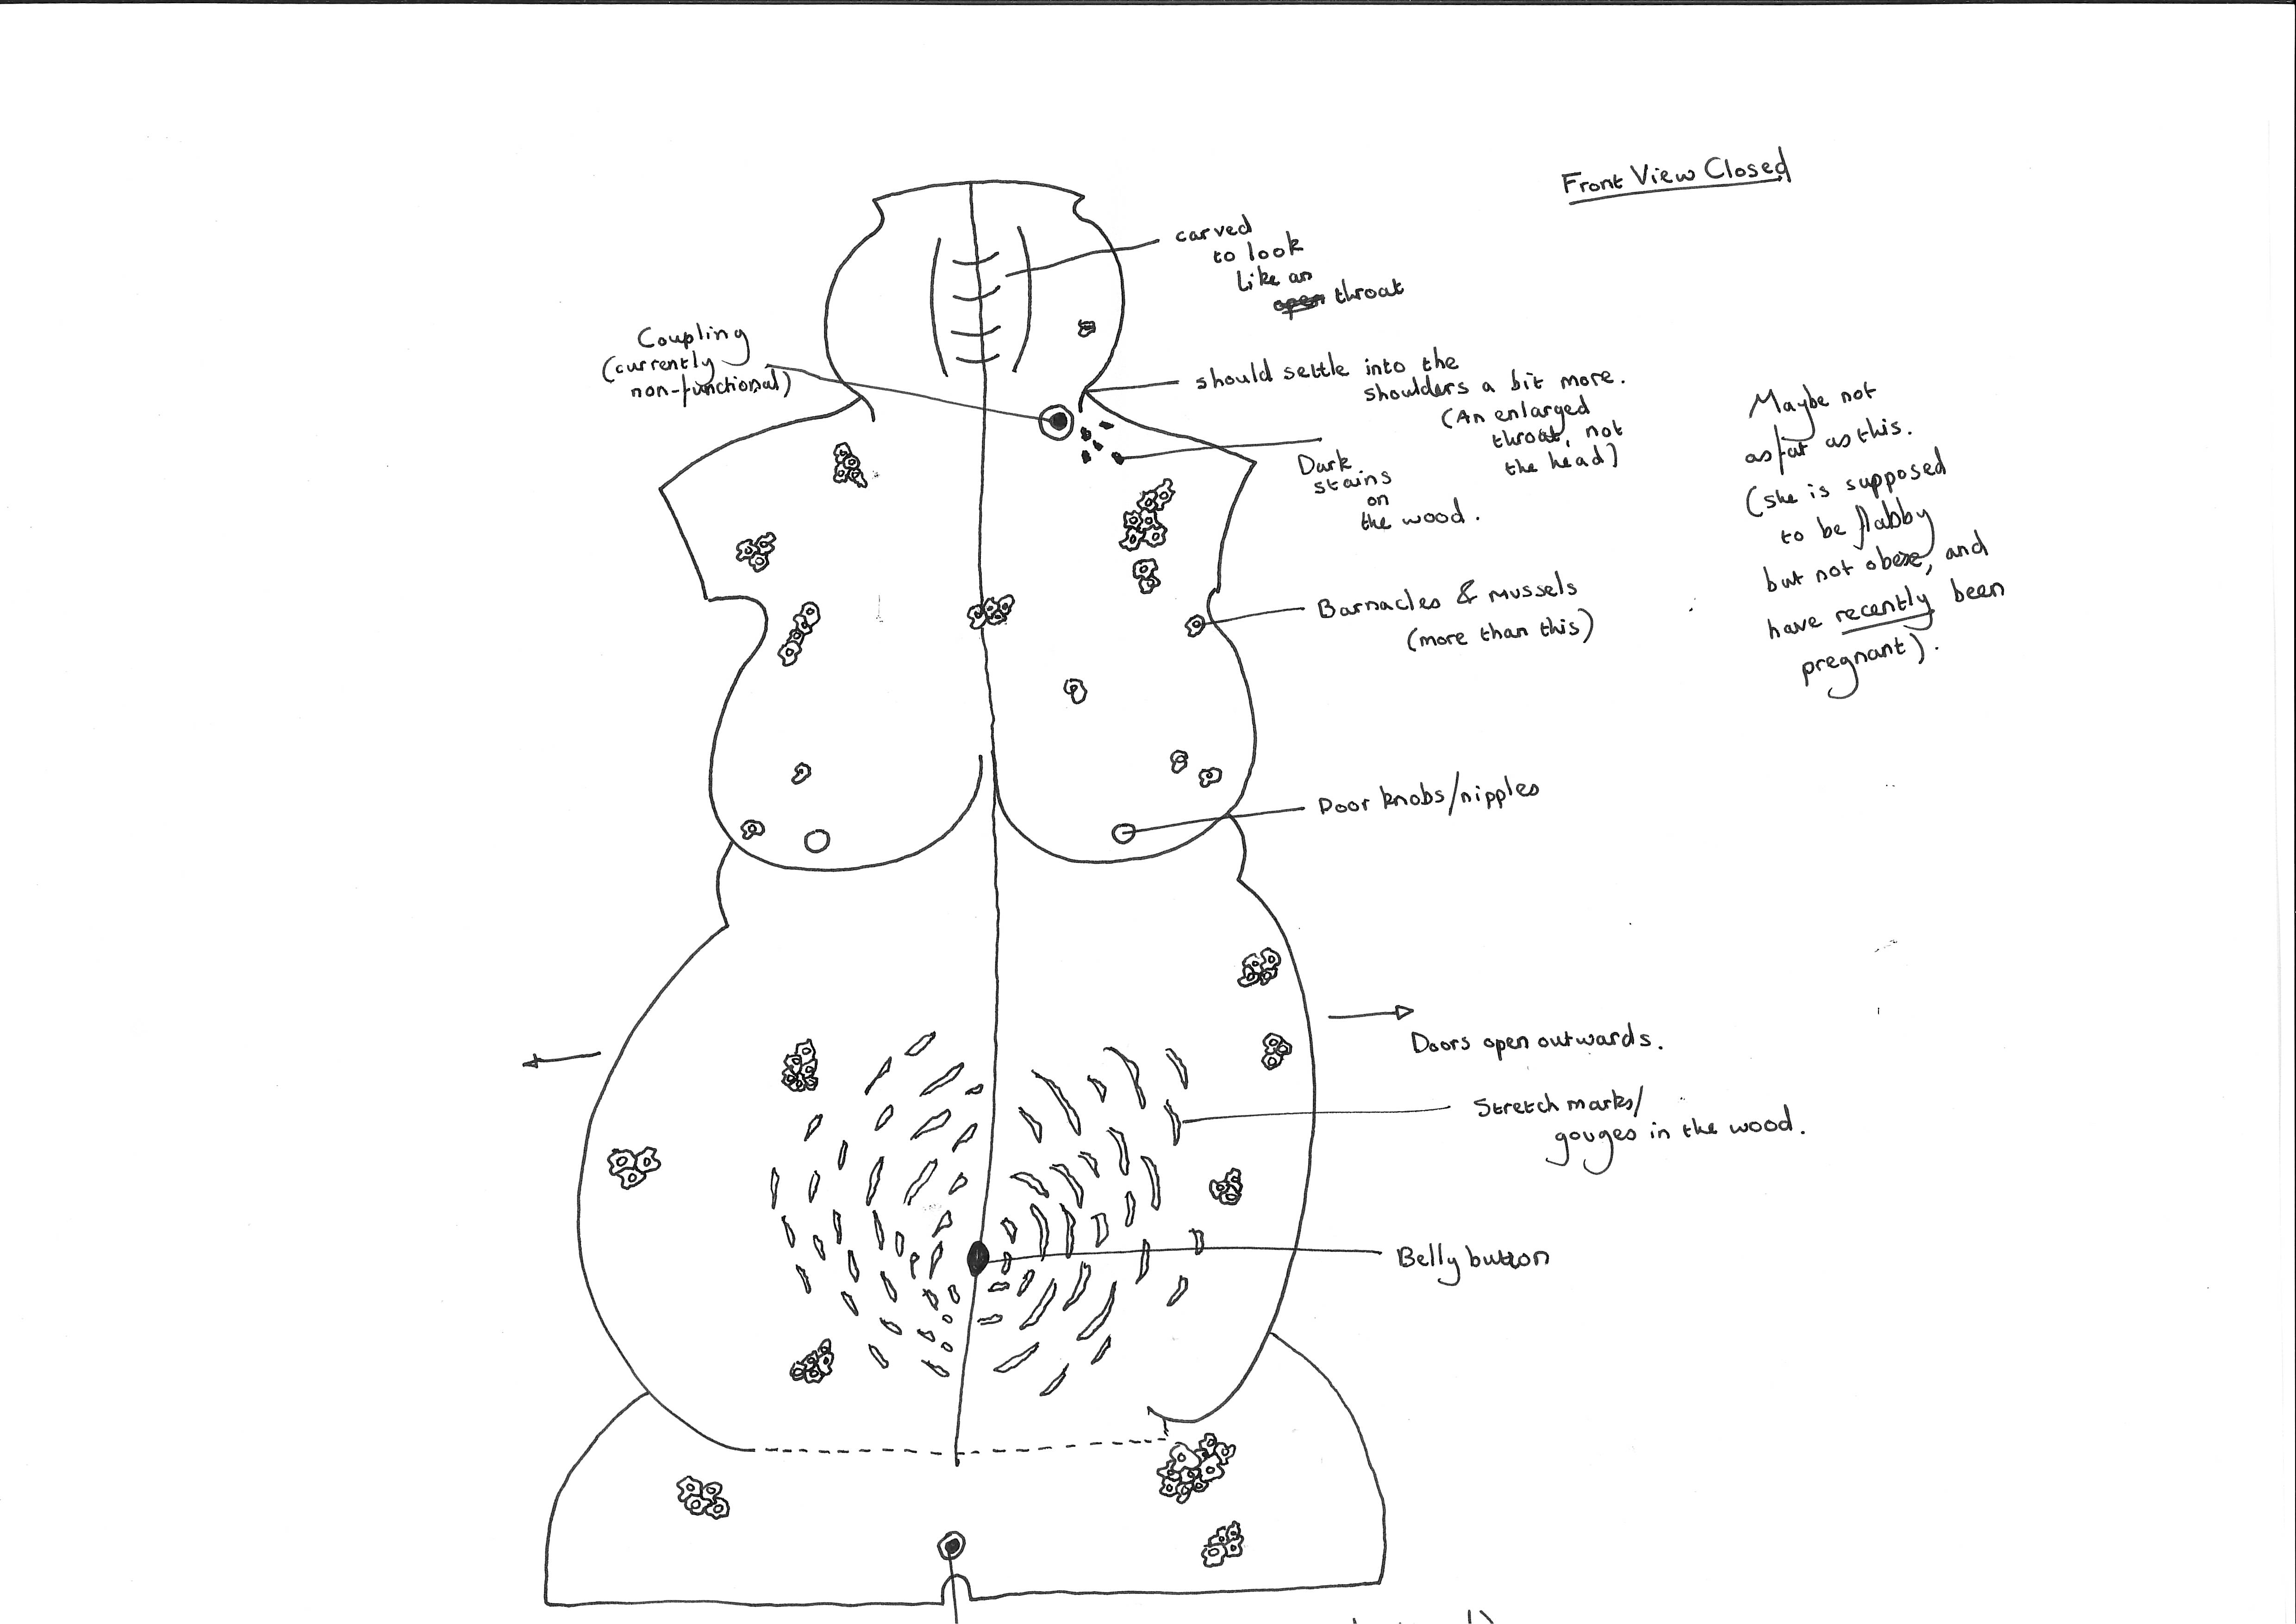 Front View Closed
carved
to look
like an
open throat
Coupling
(currently
non-functional)
should settle into the
shoulders a bit more.
(An enlarged
throat, not
the head)
Maybe not
as fat as this.
(she is supposed
to be flabby
but not obese, and
have recently been
pregnant).
Dark
stains
on
the wood.
Barnacles & mussels
(more than this)
Door knobs/nipples
Doors open outwards.
Stretch marks/
gouges in the wood.
Belly button